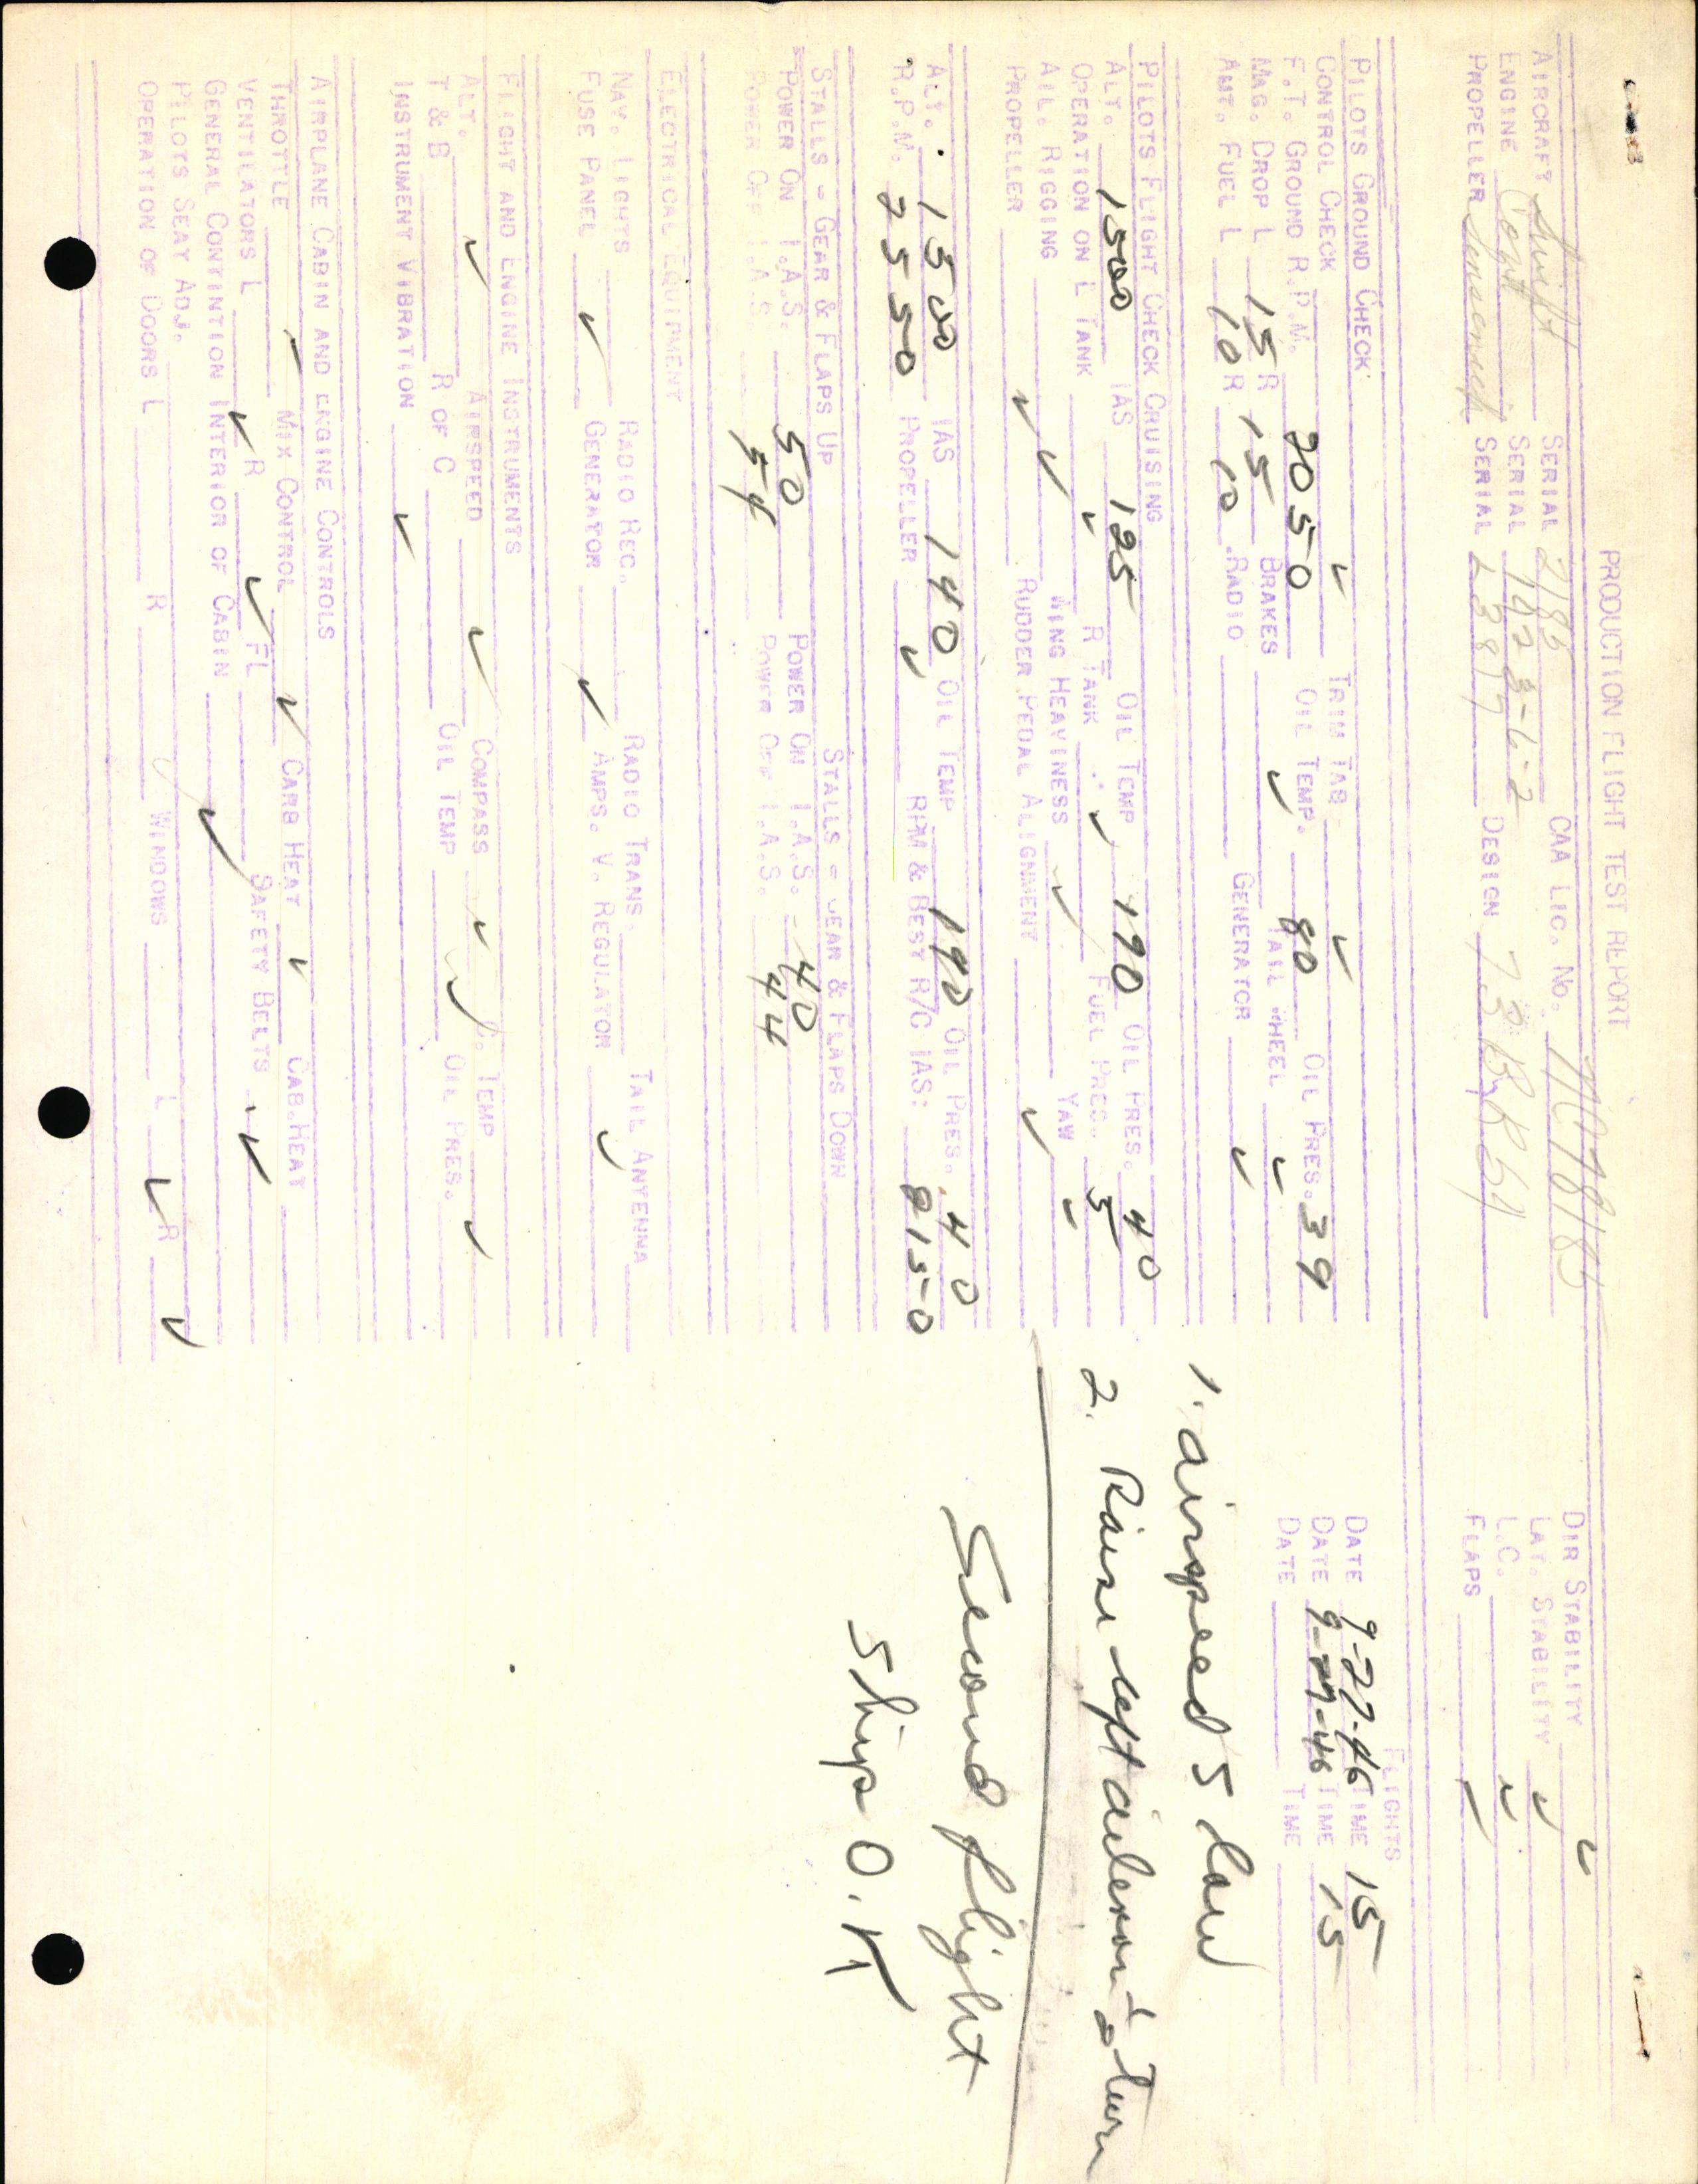 PRODUCTION FLIGHT TEST REPORT
AIRCRAFT Swift SERIAL 2185 CAA LIC. NO. DIR STABILITY ✓
ENGINE Cont SERIAL LAT. STABILITY ✓
PROPELLER Sensenich SERIAL DESIGN L.C. ✓
FLAPS ✓
FLIGHTS
PILOTS GROUND CHECK DATE 9-27-46 TIME 15
CONTROL CHECK ✓ TRIM TAB ✓ DATE 9-27-46 TIME 15
F.T. GROUND R.P.M. 2050 OIL TEMP. 80 OIL PRES. 39 DATE TIME
MAG. DROP L 15 R 15 BRAKES ✓ TAIL WHEEL ✓
AMT. FUEL L 10 R 10 RADIO GENERATOR ✓
1. airspeed 5 low
PILOTS FLIGHT CHECK CRUISING
ALT. 1500 IAS 125 OIL TEMP 190 OIL PRES. 40
OPERATION ON L TANK ✓ R TANK ✓ FUEL PRES. 5
2. Raise left aileron ½ turn
AIL. RIGGING ✓ WING HEAVINESS ✓ YAW ✓
PROPELLER ✓ RUDDER PEDAL ALIGNMENT ✓
ALT. 1500 IAS 140 OIL TEMP 190 OIL PRES. 40
R.P.M. 2550 PROPELLER ✓ RPM & BEST R/C IAS: 2150
Second flight
Ship O.K
STALLS = GEAR & FLAPS UP STALLS = GEAR & FLAPS DOWN
POWER ON I.A.S. 50 POWER ON I.A.S. 40
POWER OFF I.A.S. 54 POWER OFF I.A.S. 44
ELECTRICAL EQUIPMENT
NAV. LIGHTS RADIO REC. RADIO TRANS. TAIL ANTENNA
FUSE PANEL ✓ GENERATOR ✓ AMPS. V. REGULATOR ✓
FLIGHT AND ENGINE INSTRUMENTS
ALT. ✓ AIRSPEED ✓ COMPASS ✓ TEMP ✓
T & B R OF C OIL TEMP OIL PRES.
INSTRUMENT VIBRATION ✓
AIRPLANE CABIN AND ENGINE CONTROLS
THROTTLE ✓ MIX CONTROL ✓ CARB HEAT ✓ CAB.HEAT
VENTILATORS L ✓ R ✓ FL SAFETY BELTS ✓
GENERAL CONTINTION INTERIOR OF CABIN ✓
PILOTS SEAT ADJ.
OPERATION OF DOORS L R WINDOWS L ✓ R ✓